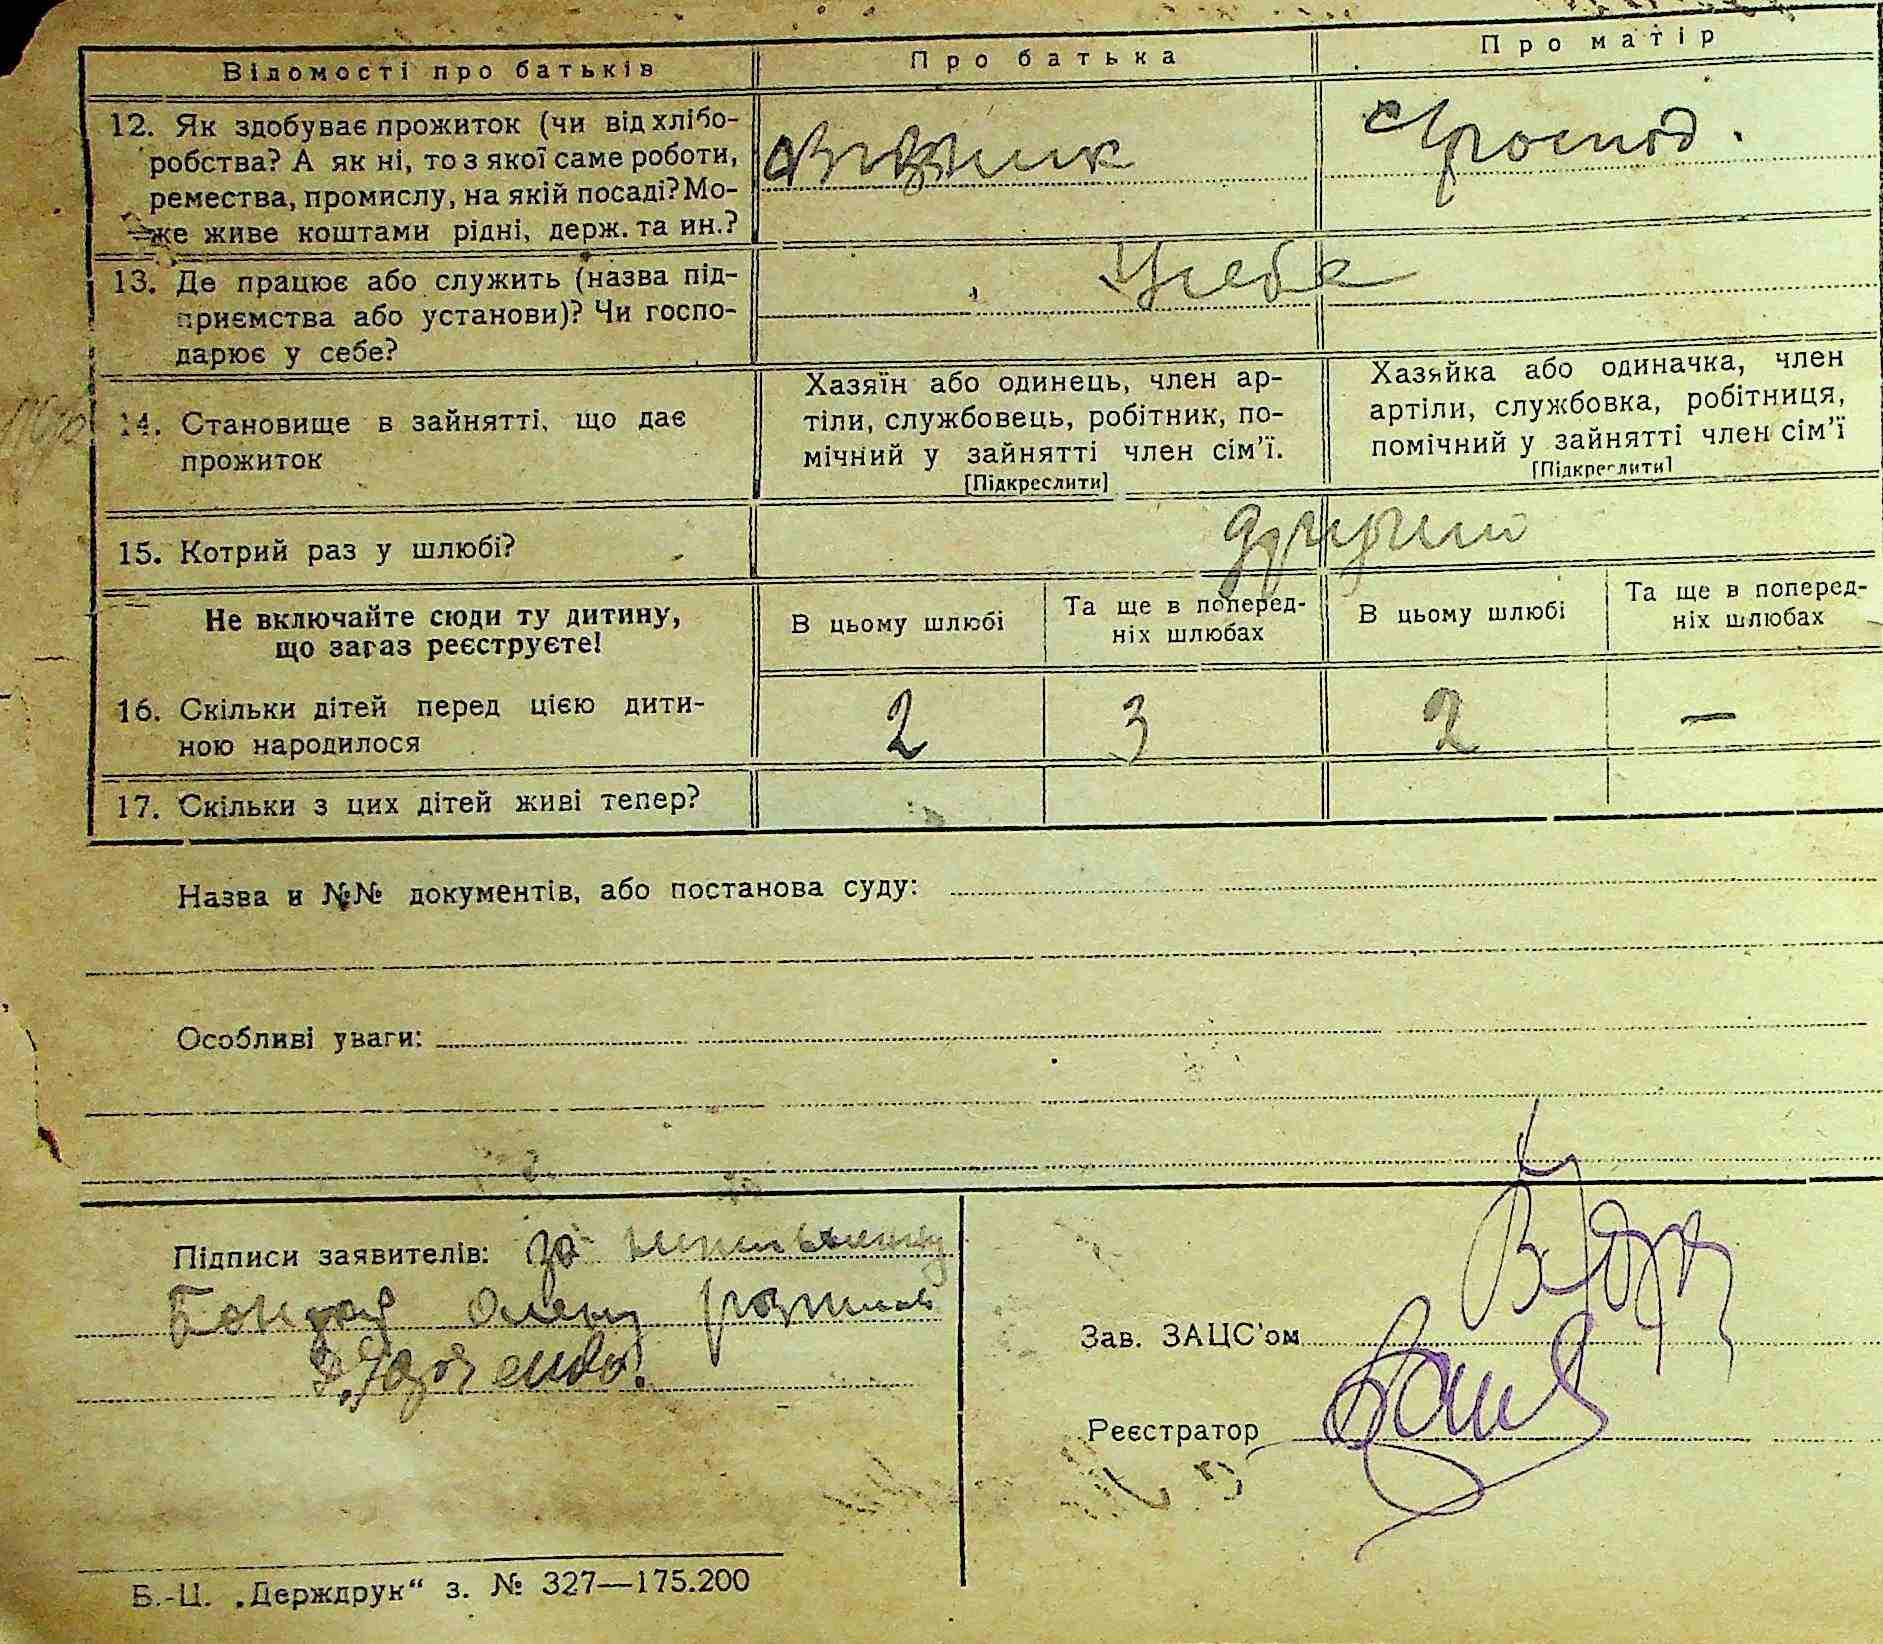 Відомості про батьків
Про батька
Про матір
12. Як здобуває прожиток (чи від хлібо-
робства? А як ні, то з якої саме роботи,
ремества, промислу, на якій посаді? Мо-
же живе коштами рідні, держ. та ин.?
Візник
господ.
13. Де працює або служить (назва під-
приємства або установи)? Чи госпо-
дарює у себе?
У себе
14. Становище в зайнятті, що дає
прожиток
Хазяїн або одинець, член ар-
тіли, службовець, робітник, по-
мічний у зайнятті член сім'ї.
[Підкреслити]
Хазяйка або одиначка, член
артіли, службовка, робітниця,
помічний у зайнятті член сім'ї
[Підкреслити]
15. Котрий раз у шлюбі?
другий
Не включайте сюди ту дитину,
що зараз реєструєте!
В цьому шлюбі
Та ще в поперед-
ніх шлюбах
В цьому шлюбі
Та ще в поперед-
ніх шлюбах
16. Скільки дітей перед цією дити-
ною народилося
2
3
2
—
17. Скільки з цих дітей живі тепер?
Назва и №№ документів, або постанова суду:
Особливі уваги:
Підписи заявителів: за неписьменну
Олену
Зав. ЗАЦС'ом
Реєстратор
Б.-Ц. „Держдрук“ з. № 327—175.200